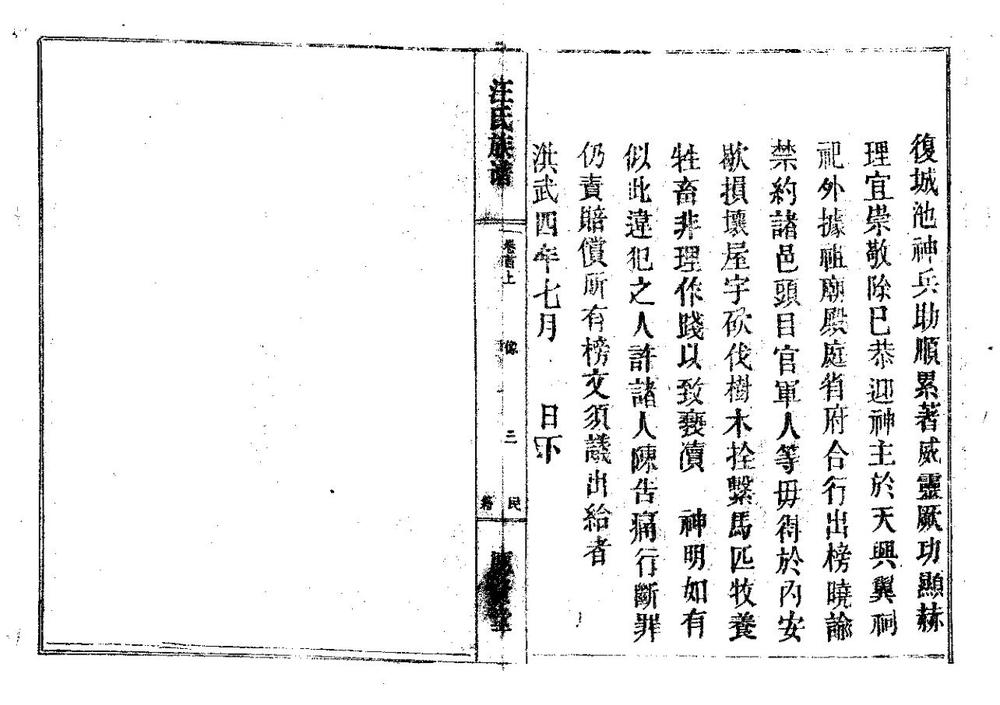 復城池神兵助順累著威靈厥功顯赫
理宜崇敬除已恭迎神主於天興翼祠
祀外據祖廟殿庭省府合行出榜曉諭
禁約諸邑頭目官軍人等毋得於內安
歇損壞屋宇砍伐樹木拴繫馬匹牧養
牲畜非理作踐以致褻瀆 神明如有
似此違犯之人許諸人陳告痛行斷罪
仍責賠償所有榜文須議出給者
洪武四年七月 日下
汪氏族譜
卷首上 像 三 民